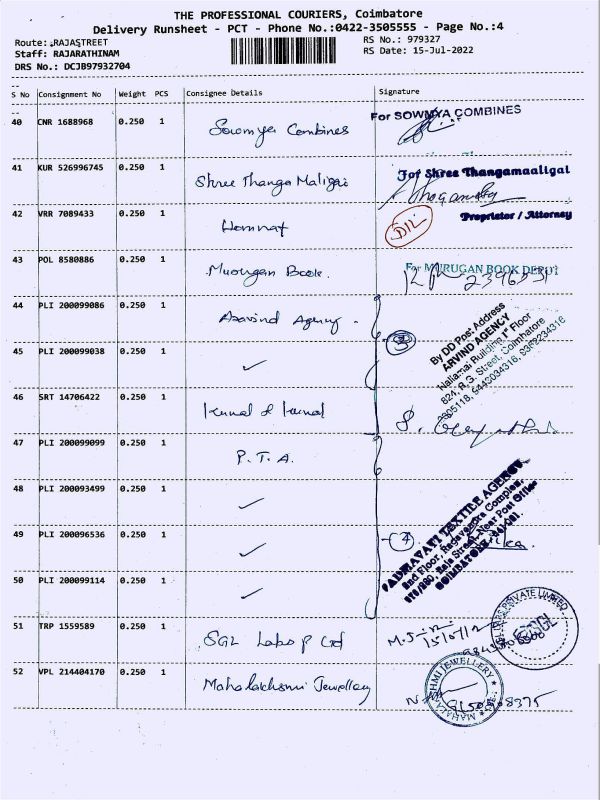 THE PROFESSIONAL COURIERS, Coimbatore
Delivery Runsheet - PCT - Phone No.:0422-3505555 - Page No.:4
Route: RAJASTREET
Staff: RAJARATHINAM
DRS No.: DCJB97932704
RS No.: 979327
RS Date: 15-Jul-2022
S No Consignment No Weight PCS Consignee Details Signature
40 CNR 1688968 0.250 1 Sowmya Combines For SOWMYA COMBINES
41 KUR 526996745 0.250 1 Shree Thanga Maligai For Shree Thangamaaligai
42 VRR 7089433 0.250 1 Proprietor / Attorney
43 POL 8580886 0.250 1 Murugan Book. For MURUGAN BOOK DEPOT
44 PLI 200099086 0.250 1 Aravind Agency.
By DD Post Address
ARVIND AGENCY
Nallamai Building, 1st Floor
624, R. G. Street, Coimbatore
45 PLI 200099038 0.250 1 ✓
46 SRT 14706422 0.250 1
47 PLI 200099099 0.250 1 P. T. A.
48 PLI 200093499 0.250 1 ✓
PADMAVATI TEXTILE AGENCY
49 PLI 200096536 0.250 1 ✓
50 PLI 200099114 0.250 1 ✓
51 TRP 1559589 0.250 1 SGL Labs P Ltd
52 VPL 214404170 0.250 1 Mahalakshmi Jewellery
MAHALAKSHMI JEWELLERY